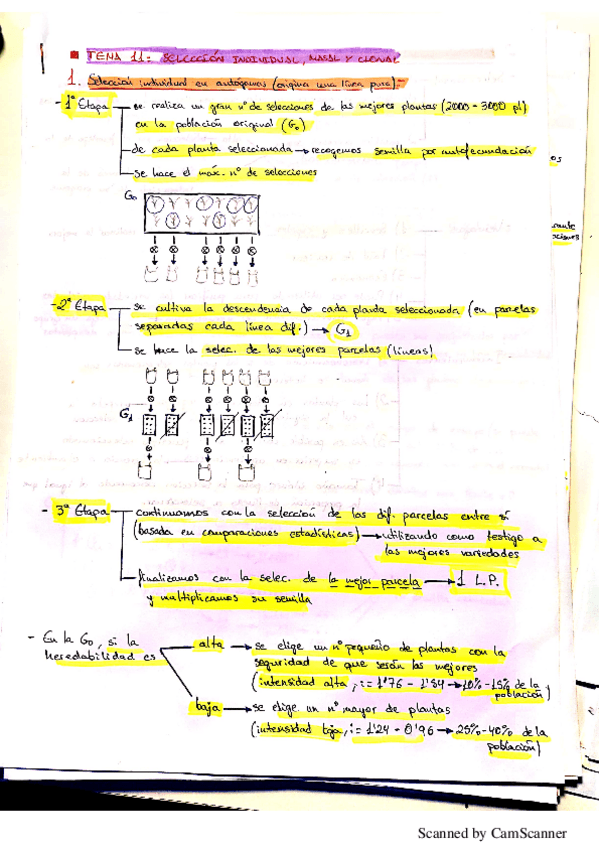 TEMA 11: SELECCIÓN INDIVIDUAL, MASAL Y CLONAL
1. Selección individual en autógamas (origina una línea pura):-
- 1ª Etapa
se realiza un gran nº de selecciones de las mejores plantas (2000 - 3000 pl)
en la población original (G₀)
de cada planta seleccionada → recogemos semilla por autofecundación
se hace el máx. nº de selecciones
G₀
- 2ª Etapa
se cultiva la descendencia de cada planta seleccionada (en parcelas
separadas cada línea dif.) → G₁
se hace la selec. de las mejores parcelas (líneas)
G₁
- 3ª Etapa
continuamos con la selección de las dif. parcelas entre sí
(basada en comparaciones estadísticas) → utilizando como testigo a
las mejores variedades
finalizamos con la selec. de la mejor parcela → 1 L.P.
y multiplicamos su semilla
- En la G₀, si la
heredabilidad es
alta → se elige un nº pequeño de plantas con la
seguridad de que serán las mejores
(intensidad alta, i = 1'76 - 1'54 → 10% - 15% de la
población)
baja → se elige un nº mayor de plantas
(intensidad baja, i = 1'24 - 0'96 → 25% - 40% de la
población)
Scanned by CamScanner